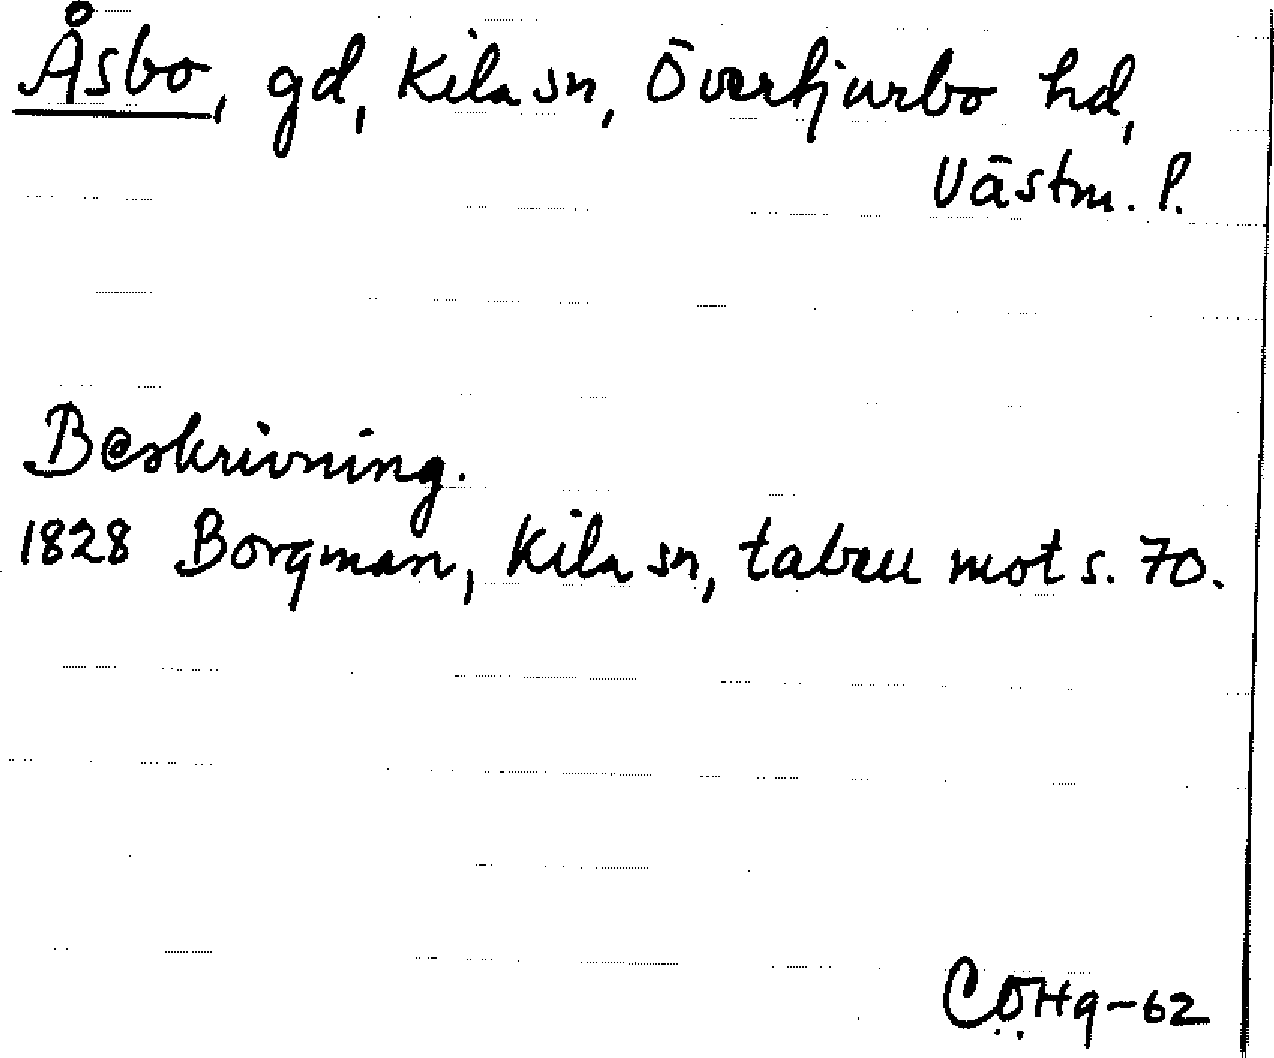 Åsbo, gd, Kila sn, Övertjurbo hd,
Västm. l.
Beskrivning.
1828 Borgman, Kila sn, tabell mot s. 70.
CÖHg-62